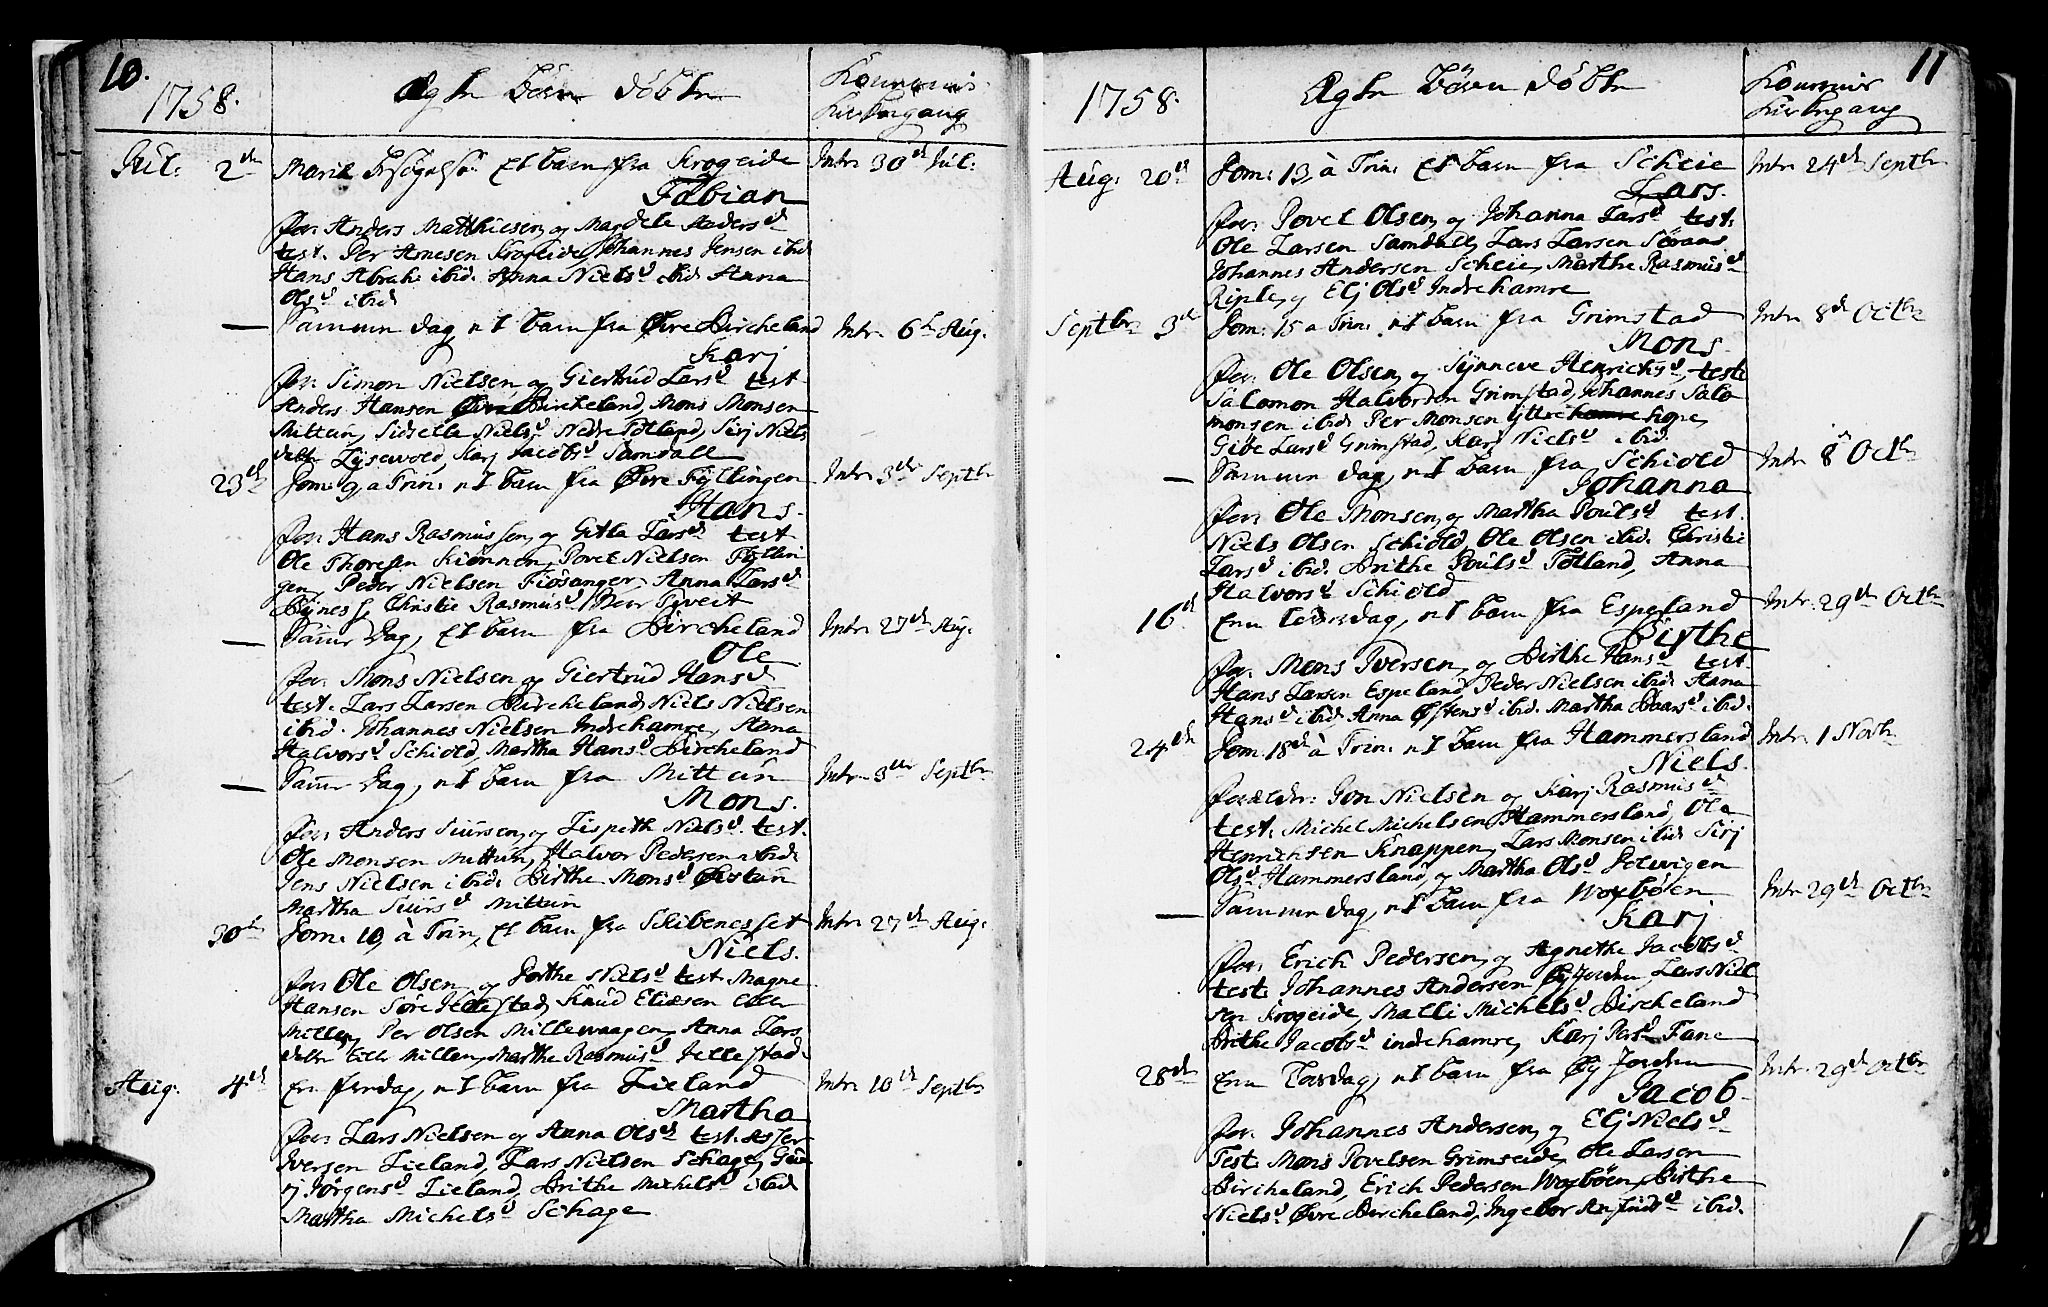 10.
1758.
Ægte Børn døbte
Konernis
Kirkegang
Jul: 2den
Mariæ Besøgelse et barn fra Krogeide
Intr. 30te Jul:
Fabian
for: Anders Matthiesen, og Magdele Andersd
test. Per Arnesen Krogeide, Johannes Jensen ibid
Hans Abrah: ibid. Anna Nielsd ibid Anna
Olsd ibid
— Samme dag, et barn fra Øvre Bircheland
Intr. 6te Aug.
Karj
for: Simon Nielsen, og Giertrud Larsd test
Anders Hansen Øvre Bircheland, Mons Monsen
Mittun, Sidselle Nielsd Nedre Totland, Sirj Niels
datter Lysewold, Karj Jacobsd Samdall
23de
Dom: 9 a Trin: et barn fra Øvre Fyllingen
Intr. 3die Septbr
Hans.
for: Hans Rasmussen, og Gitla Larsd test
Ole Thoresen Kiønnen, Povel Nielsen Fyllin
gen, Peder Nielsen Fiøsanger, Anna Larsd
Bønes, Christie Rasmusd Tveit
— Samme Dag, et barn fra Bircheland
Intr. 27de Aug.
Ole
for: Mons Nielsen og Giertrud Hansd
test. Lars Larsen Bircheland, Niels Nielsen
ibid. Johannes Nielsen Indrehamre, Anna
Halvorsd Schiold, Martha Hansd Bircheland
— Samme Dag, et barn fra Mittun
Intr. 3die Septbr
Mons.
for: Anders Siursen, og Lispeth Nielsd test.
Ole Monsen Mittun, Halvor Pedersen ibid
Jens Nielsen ibid. Birthe Monsd Østun
Martha Siursd Mittun
30te
Dom: 10 à Trin, et barn fra Skibenesset
Intr. 27de Aug:
Niels.
for: Ole Olsen og Dorthe Nielsd test. Magne
Hansen Søre Jellestad, Knud Eliæsen
Millen, Per Olsen Millewaagen, Anna Lars
datter Millen, Marthe Rasmusd Jellestad.
Aug: 4de
En fredag, et barn fra Lieland
Intr. 10de Septbr
Martha
for: Lars Nielsen og Anna Olsd test. Asser
Iversen Lieland, Lars Nielsen Schage, Gur
rj Jørgensd Lieland, Brithe Michelsd ibid
Martha Michelsd Schage
11
1758.
Ægte Børn døbte
Konernis
Kirkegang
Aug: 20de
Dom: 13 à Trin: et barn fra Scheie
Intr. 24de Septbr
Lars.
for: Povel Olsen, og Johanna Larsd test.
Ole Larsen Samdall, Lars Larsen Søraas
Johannes Andersen Scheie, Marthe Rasmusd
Riple, og Elj Olsd Indrehamre
Septbr 3de
Dom: 15 a Trin: et barn fra Grimstad
Intr. 8de Octbr
Mons.
for: Ole Olsen, og Synneve Henrichsd, test:
Salomon Halvordsen Grimstad, Johannes Salo
monsen ibid Per Monsen Yttre hamre hope,
Gibe Larsd Grimstad, Karj Nielsd ibid.
— Samme Dag, et barn fra Schiold
Intr. 8de Octbr
Johanna
for: Ole Monsen, og Martha Poulsd test.
Niels Olsen Schiold, Ole Olsen ibid. Christie
Larsd ibid. Brithe Poulsd Totland, Anna
Halvorsd Schiold
16de
En løverdag, et barn fra Espeland
Intr. 29de Octbr
Birthe
for: Mons Iversen, og Birthe Hansd test.
Hans Larsen Espeland, Peder Nielsen ibid. Anna
Hansd ibid, Anna Østensd ibid. Martha Baarsd ibid.
24de
Dom: 18de à Trin: et barn fra Hammersland
Intr. 1 Novbr
Niels.
Forælder: Jon Nielsen og Karj Rasmusd
test. Michel Michelsen Hammersland, Ole
Henrichsen Knappen, Lars Monsen ibid Sirj
Olsd Hammersland, og Martha Olsd Dolwigen
— Samme Dag, et barn fra Woxbøen
Intr. 29de Octbr
Karj
for: Erich Pedersen, og Agnethe Jacobsd
test: Johannes Andersen Øyjorden, Lars Niel
sen Krogeide, Malli Michelsd Bircheland
Brithe Jacobsd indrehamre, Karj Persd Fane
28de
En Torsdag, et barn fra Øy Jorden
Intr. 29de Octbr
Jacob.
for: Johannes Andersen, og Elj Nielsd
Test: Mons Povelsen Grimseide, Ole Larsen
Bircheland, Erich Pedersen Woxbøen, Birthe
Nielsd Øvre Bircheland, Ingebor Anfindsd ibid.